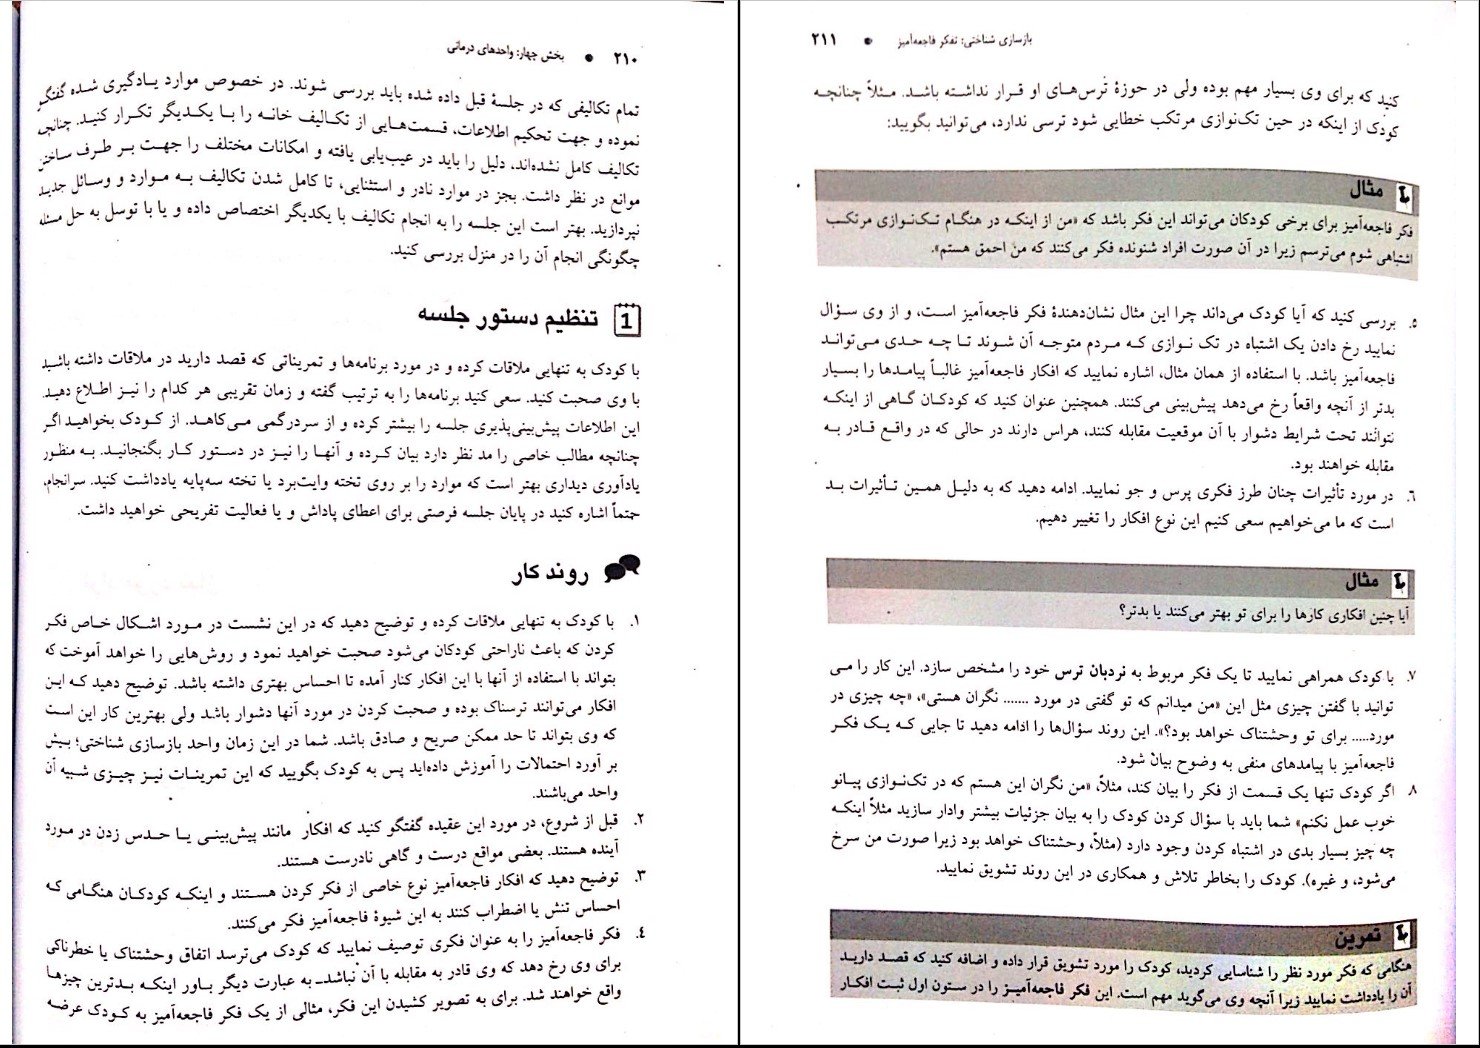 ۲۱۰ ● بخش چهار: واحدهای درمانی
تمام تکالیفی که در جلسهٔ قبل داده شده باید بررسی شوند. در خصوص موارد یادگیری شده گفتگو
نموده و جهت تحکیم اطلاعات، قسمت‌هایی از تکالیف خانه را با یکدیگر تکرار کنید. چنانچه
تکالیف کامل نشده‌اند، دلیل را باید در عیب‌یابی یافته و امکانات مختلف را جهت بر طرف ساختن
موانع در نظر داشت. بجز در موارد نادر و استثنایی، تا کامل شدن تکالیف به موارد و وسائل جدید
نپردازید. بهتر است این جلسه را به انجام تکالیف با یکدیگر اختصاص داده و یا با توسل به حل مسئله
چگونگی انجام آن را در منزل بررسی کنید.
1 تنظیم دستور جلسه
با کودک به تنهایی ملاقات کرده و در مورد برنامه‌ها و تمریناتی که قصد دارید در ملاقات داشته باشید
با وی صحبت کنید. سعی کنید برنامه‌ها را به ترتیب گفته و زمان تقریبی هر کدام را نیز اطلاع دهید.
این اطلاعات پیش‌بینی‌پذیری جلسه را بیشتر کرده و از سردرگمی می‌کاهد. از کودک بخواهید اگر
چنانچه مطالب خاصی را مد نظر دارد بیان کرده و آنها را نیز در دستور کار بگنجانید. به منظور
یادآوری دیداری بهتر است که موارد را بر روی تخته وایت‌برد یا تخته سه‌پایه یادداشت کنید. سرانجام،
حتماً اشاره کنید در پایان جلسه فرصتی برای اعطای پاداش و یا فعالیت تفریحی خواهید داشت.
روند کار
۱. با کودک به تنهایی ملاقات کرده و توضیح دهید که در این نشست در مورد اشکال خاص فکر
کردن که باعث ناراحتی کودکان می‌شود صحبت خواهید نمود و روش‌هایی را خواهد آموخت که
بتواند با استفاده از آنها با این افکار کنار آمده تا احساس بهتری داشته باشد. توضیح دهید که این
افکار می‌توانند ترسناک بوده و صحبت کردن در مورد آنها دشوار باشد ولی بهترین کار این است
که وی بتواند تا حد ممکن صریح و صادق باشد. شما در این زمان واحد بازسازی شناختی؛ بیش
بر آورد احتمالات را آموزش داده‌اید پس به کودک بگویید که این تمرینات نیز چیزی شبیه آن
واحد می‌باشند.
۲. قبل از شروع، در مورد این عقیده گفتگو کنید که افکار مانند پیش‌بینی یا حدس زدن در مورد
آینده هستند. بعضی مواقع درست و گاهی نادرست هستند.
۳. توضیح دهید که افکار فاجعه‌آمیز نوع خاصی از فکر کردن هستند و اینکه کودکان هنگامی که
احساس تنش یا اضطراب کنند به این شیوهٔ فاجعه‌آمیز فکر می‌کنند.
۴. فکر فاجعه‌آمیز را به عنوان فکری توصیف نمایید که کودک می‌ترسد اتفاق وحشتناک یا خطرناکی
برای وی رخ دهد که وی قادر به مقابله با آن نباشد_ به عبارت دیگر باور اینکه بدترین چیزها
واقع خواهند شد. برای به تصویر کشیدن این فکر، مثالی از یک فکر فاجعه‌آمیز به کودک عرضه
بازسازی شناختی: تفکر فاجعه‌آمیز ● ۲۱۱
کنید که برای وی بسیار مهم بوده ولی در حوزهٔ ترس‌های او قرار نداشته باشد. مثلاً چنانچه
کودک از اینکه در حین تک‌نوازی مرتکب خطایی شود ترسی ندارد، می‌توانید بگویید:
مثال
فکر فاجعه‌آمیز برای برخی کودکان می‌تواند این فکر باشد که «من از اینکه در هنگام تک‌نوازی مرتکب
اشتباهی شوم می‌ترسم زیرا در آن صورت افراد شنونده فکر می‌کنند که من احمق هستم».
۵. بررسی کنید که آیا کودک می‌داند چرا این مثال نشان‌دهندهٔ فکر فاجعه‌آمیز است، و از وی سؤال
نمایید رخ دادن یک اشتباه در تک نوازی که مردم متوجه آن شوند تا چه حدی می‌تواند
فاجعه‌آمیز باشد. با استفاده از همان مثال، اشاره نمایید که افکار فاجعه‌آمیز غالباً پیامدها را بسیار
بدتر از آنچه واقعاً رخ می‌دهد پیش‌بینی می‌کنند. همچنین عنوان کنید که کودکان گاهی از اینکه
نتوانند تحت شرایط دشوار با آن موقعیت مقابله کنند، هراس دارند در حالی که در واقع قادر به
مقابله خواهند بود.
۶. در مورد تأثیرات چنان طرز فکری پرس و جو نمایید. ادامه دهید که به دلیل همین تأثیرات بد
است که ما می‌خواهیم سعی کنیم این نوع افکار را تغییر دهیم.
مثال
آیا چنین افکاری کارها را برای تو بهتر می‌کنند یا بدتر؟
۷. با کودک همراهی نمایید تا یک فکر مربوط به نردبان ترس خود را مشخص سازد. این کار را می
توانید با گفتن چیزی مثل این «من میدانم که تو گفتی در مورد ....... نگران هستی»، «چه چیزی در
مورد..... برای تو وحشتناک خواهد بود؟». این روند سؤال‌ها را ادامه دهید تا جایی که یک فکر
فاجعه‌آمیز با پیامدهای منفی به وضوح بیان شود.
۸. اگر کودک تنها یک قسمت از فکر را بیان کند، مثلاً، «من نگران این هستم که در تک‌نوازی پیانو
خوب عمل نکنم» شما باید با سؤال کردن کودک را به بیان جزئیات بیشتر وادار سازید مثلاً اینکه
چه چیز بسیار بدی در اشتباه کردن وجود دارد (مثلاً، وحشتناک خواهد بود زیرا صورت من سرخ
می‌شود، و غیره). کودک را بخاطر تلاش و همکاری در این روند تشویق نمایید.
تمرین
هنگامی که فکر مورد نظر را شناسایی کردید، کودک را مورد تشویق قرار داده و اضافه کنید که قصد دارید
آن را یادداشت نمایید زیرا آنچه وی می‌گوید مهم است. این فکر فاجعه‌آمیز را در ستون اول ثبت افکار